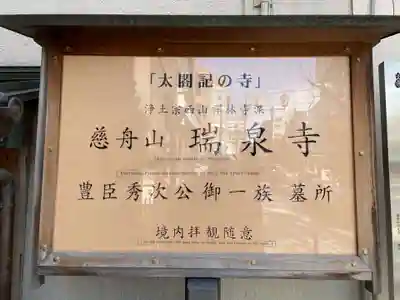 「太閤記の寺」
浄土宗西山禅林寺派
慈舟山 瑞泉寺
豊臣秀次公御一族 墓所
境内拝観随意